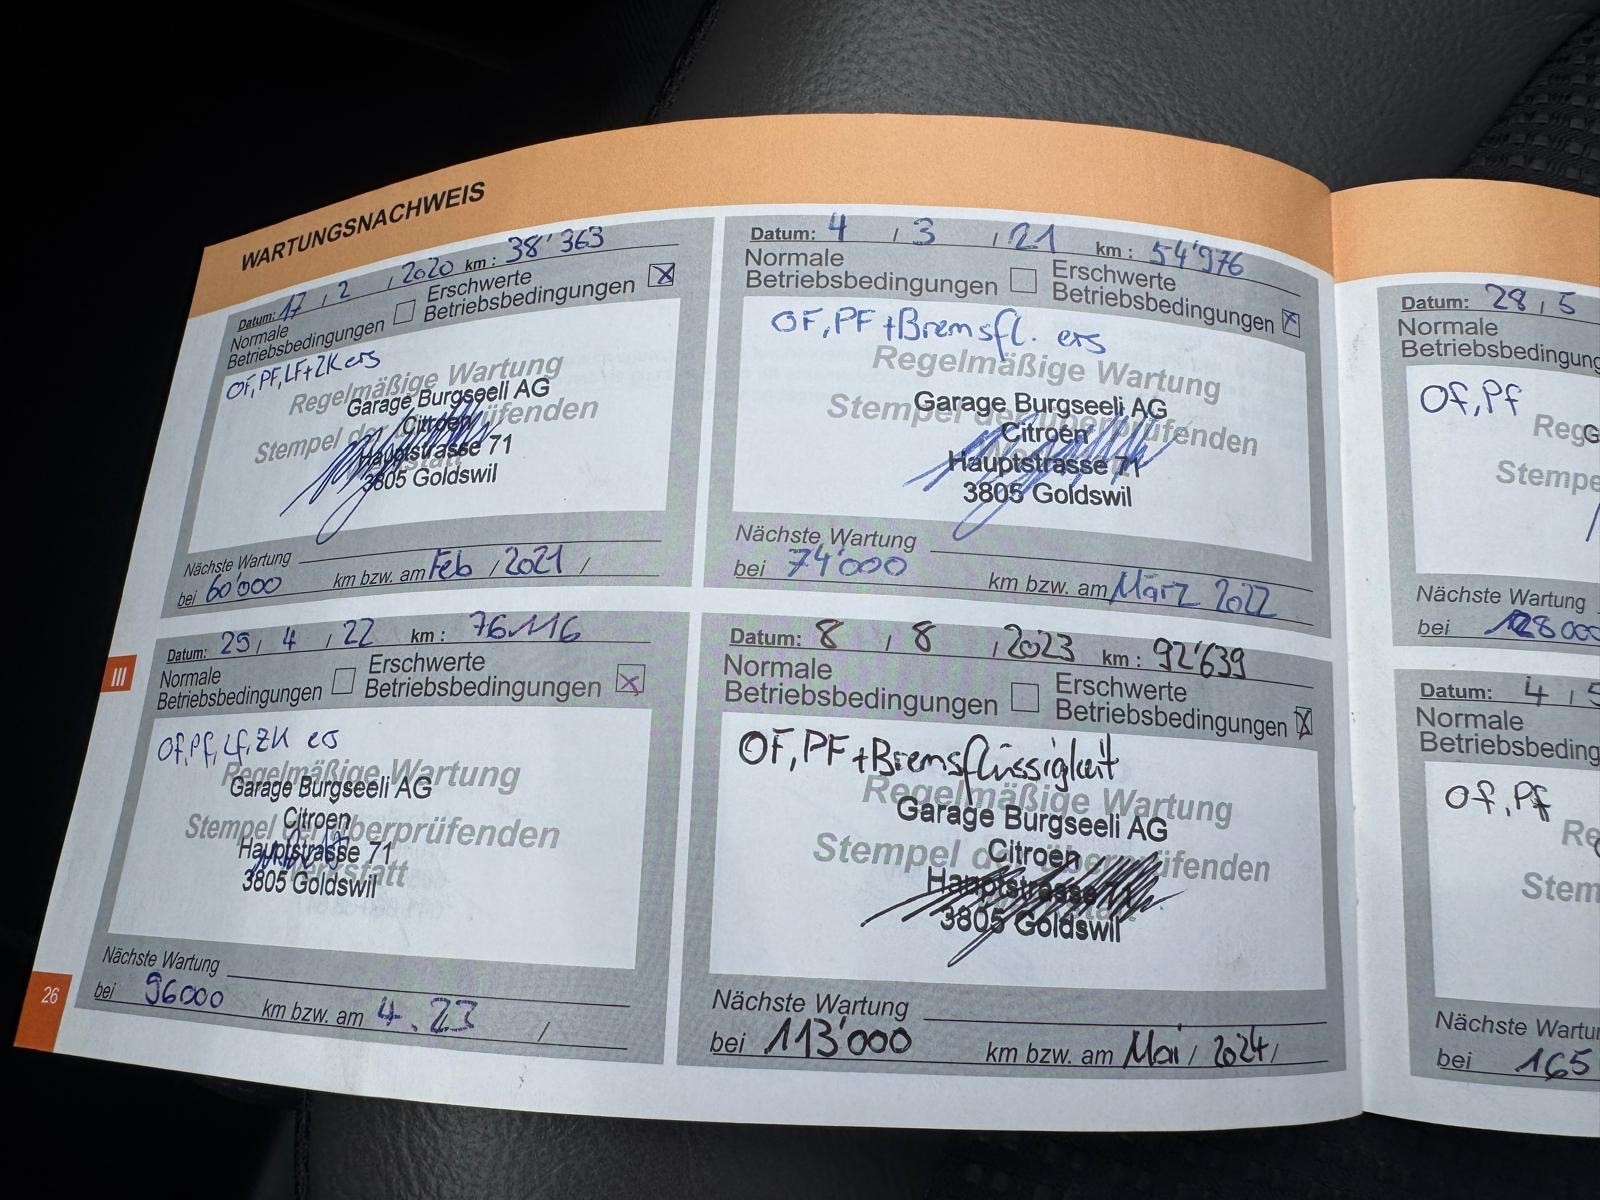 WARTUNGSNACHWEIS
Datum: 17 / 2 / 2020 km : 38'363
Normale Betriebsbedingungen
Erschwerte Betriebsbedingungen
OF, PF, LF+ZK ers
Regelmäßige Wartung
Garage Burgseeli AG
Citroën
Stempel der überprüfenden
Hauptstrasse 71
3805 Goldswil
Nächste Wartung
bei 60'000 km bzw. am Feb / 2021 /
Datum: 4 / 3 / 21 km : 54'976
Normale Betriebsbedingungen
Erschwerte Betriebsbedingungen
OF, PF + Bremsfl. ers
Regelmäßige Wartung
Garage Burgseeli AG
Stempel der überprüfenden
Citroën
Hauptstrasse 71
3805 Goldswil
Nächste Wartung
bei 74'000 km bzw. am März 2022
Datum: 29 / 4 / 22 km : 76116
Normale Betriebsbedingungen
Erschwerte Betriebsbedingungen
Of, Pf, Lf, ZK ers
Regelmäßige Wartung
Garage Burgseeli AG
Citroën
Stempel der überprüfenden
Hauptstrasse 71
Werkstatt
3805 Goldswil
Nächste Wartung
bei 96000 km bzw. am 4.23 /
Datum: 8 / 8 / 2023 km : 92'639
Normale Betriebsbedingungen
Erschwerte Betriebsbedingungen
OF, PF + Bremsflüssigkeit
Regelmäßige Wartung
Garage Burgseeli AG
Citroën
Stempel der überprüfenden
Hauptstrasse 71
3805 Goldswil
Nächste Wartung
bei 113'000 km bzw. am Mai / 2024 /
III
26
Datum: 28 / 5
Normale
Betriebsbedingung
Of, Pf
Reg
G
Stempe
Nächste Wartung
bei 128000
Datum: 4 / 5
Normale
Betriebsbeding
Of, Pf
Re
Stem
Nächste Wartu
bei 165